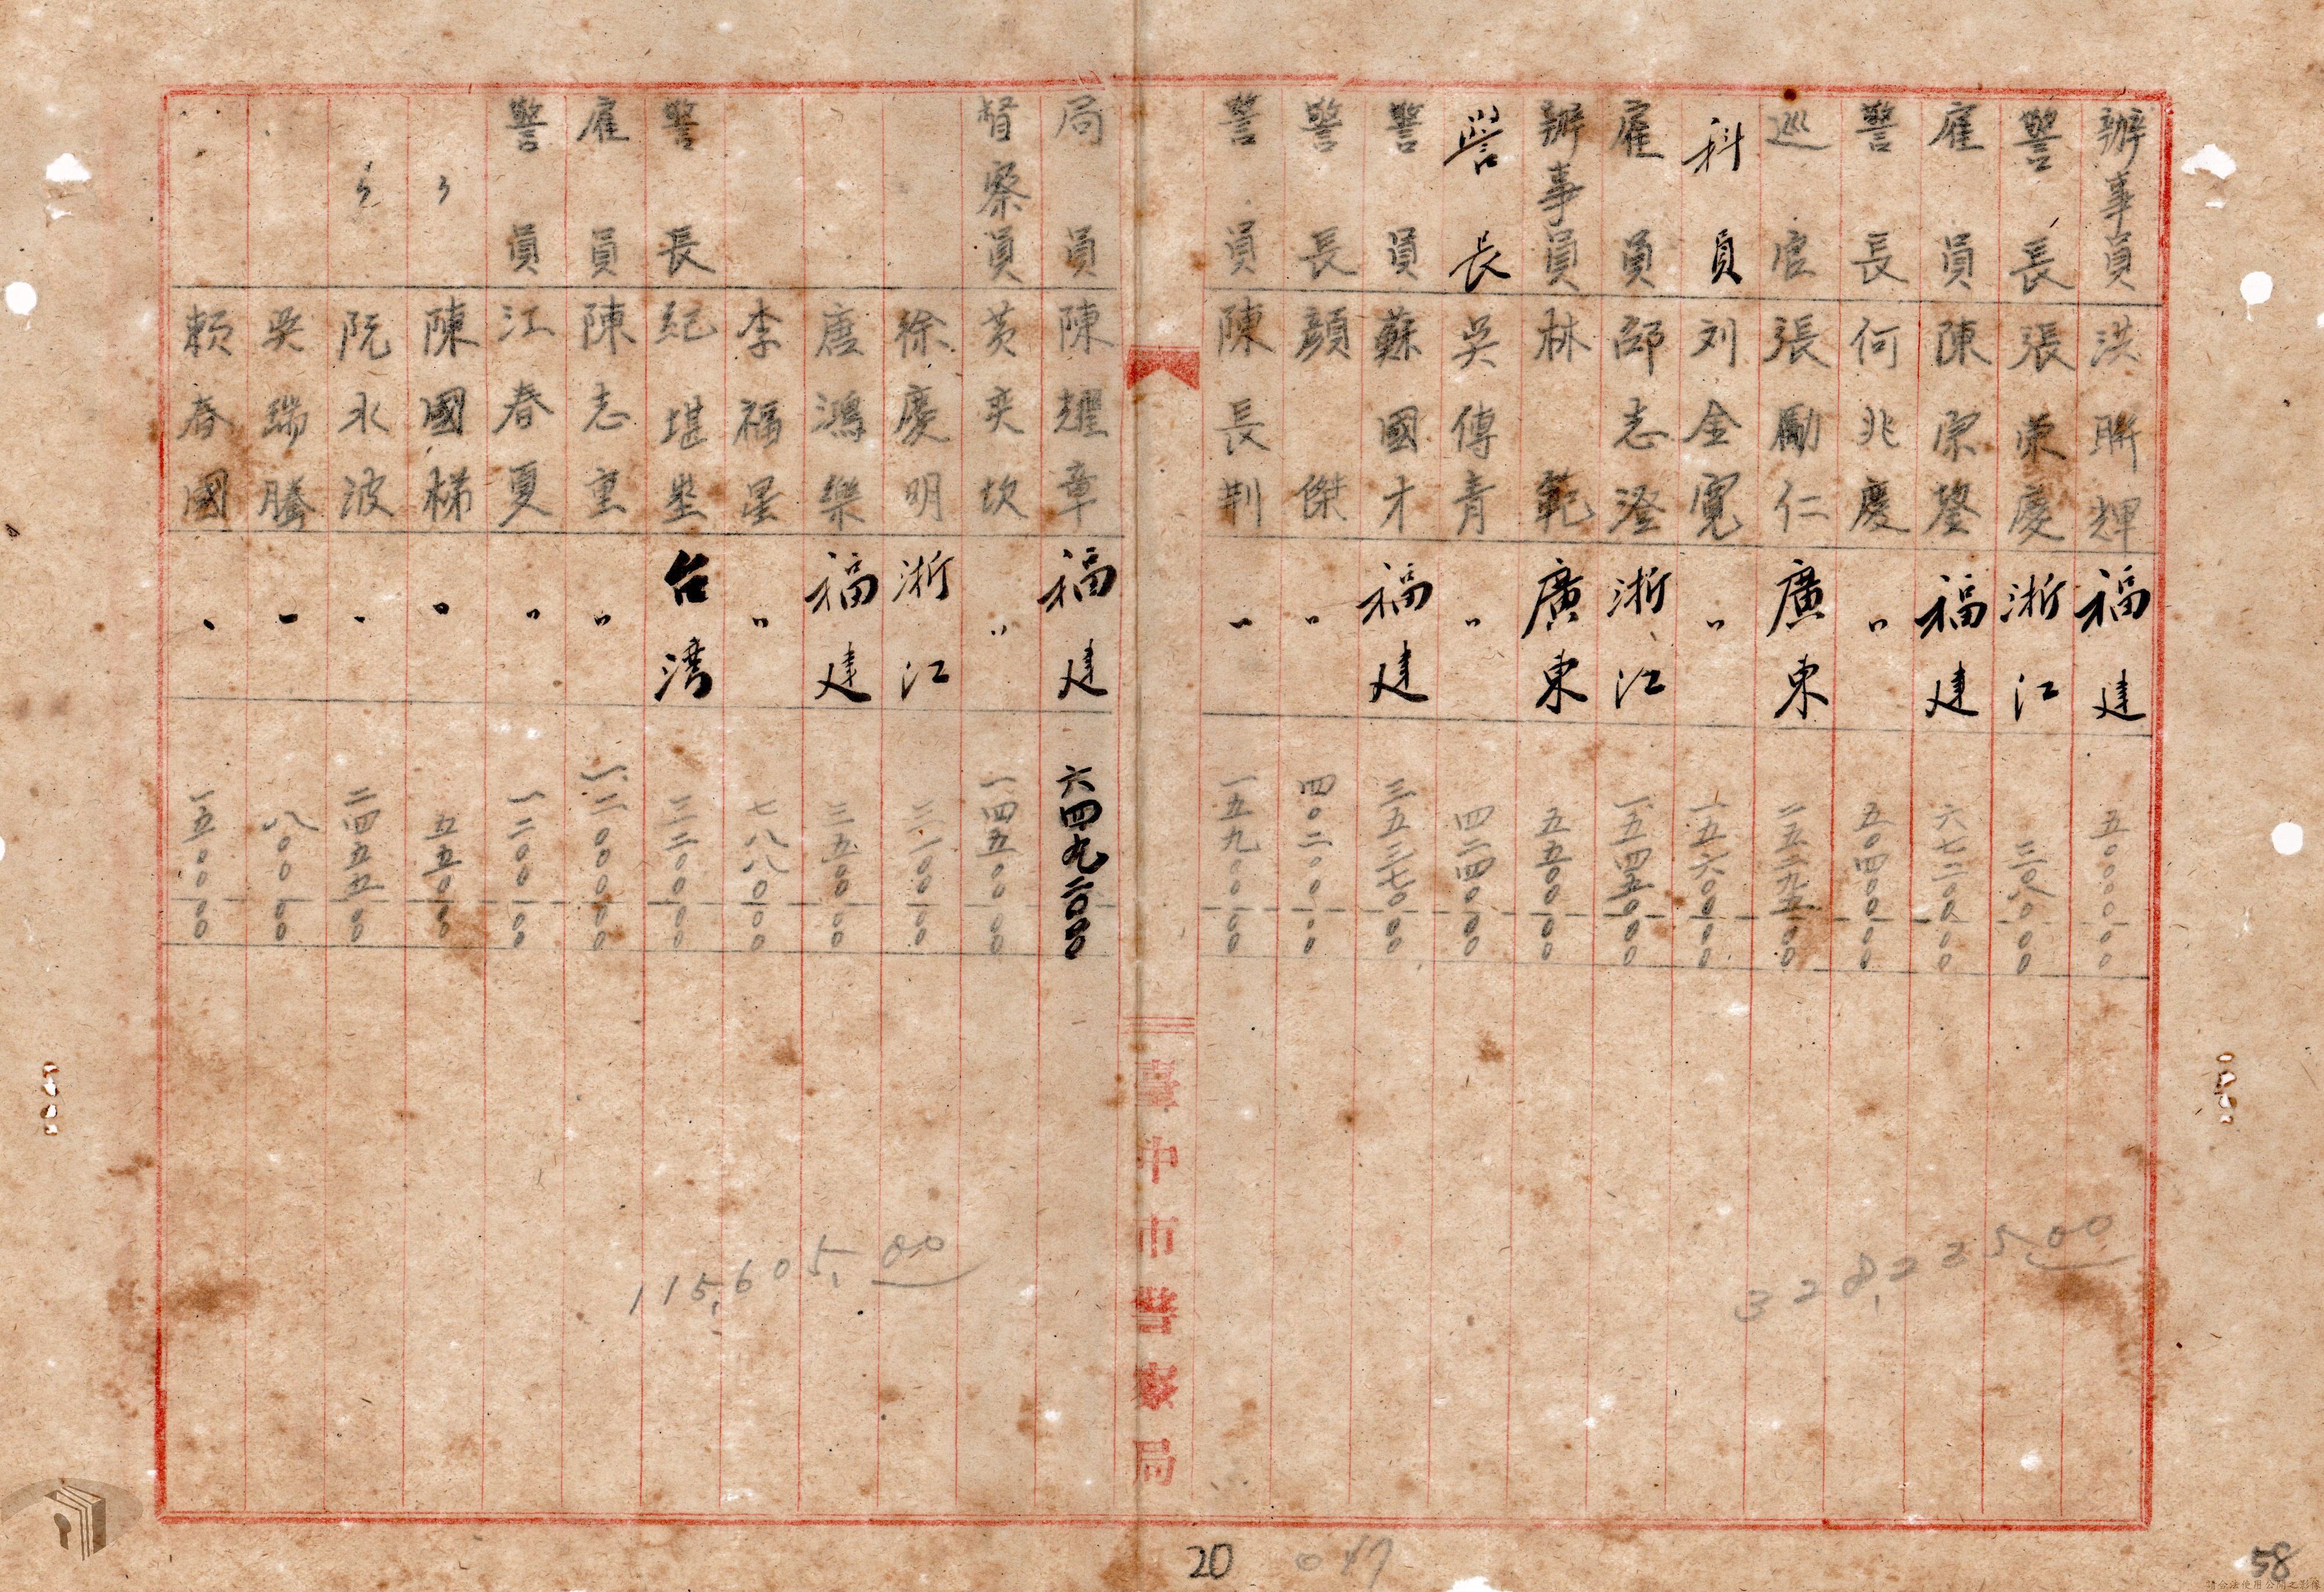 辦事員 洪聯輝 福建 五〇〇〇〇〇
警長 張榮慶 浙江 三〇八〇〇〇
雇員 陳宗鏧 福建 六七二〇〇〇〇
警長 何兆慶 〃 五〇四〇〇〇〇
巡官 張勵仁 廣東
科員 刘金寬 〃 一五六〇〇〇〇
雇員 邵志澄 浙江 一五四五〇〇〇
辦事員 林範 廣東 五五〇〇〇〇
警長 吳傳青 〃 四二四〇〇〇〇
警員 蘇國才 福建 三五三七〇〇〇
警長 顏傑 〃 四〇二〇〇〇〇
警員 陳長荆 〃 一五九〇〇〇〇
328,225.00
臺中市警察局
局員 陳耀章 福建 六四九二〇〇〇
督察員 黃奕坎 〃 一四五〇〇〇〇
徐慶明 浙江 三一〇〇〇〇
唐鴻樂 福建 三五〇〇〇〇
李福星 〃 七八八〇〇〇
警長 紀堪坐 台湾 三二〇〇〇〇
雇員 陳志重 〃 一二〇〇〇〇〇
警員 江春夏 〃 一二〇〇〇〇
〃 陳國梯 〃 五五〇〇〇
〃 阮永波 〃 二四五五〇〇
吳瑞騰 〃 八〇〇〇〇
賴春國 〃 一五〇〇〇〇
115,605.00
20
047
58